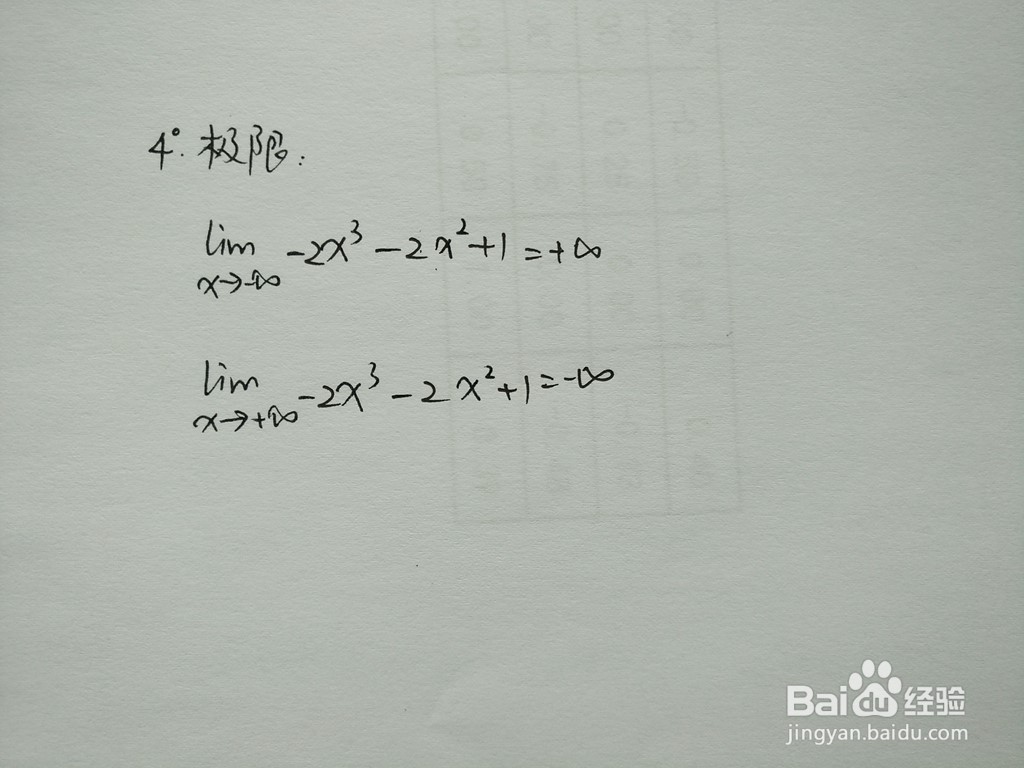 4°. 极限:
lim -2x³ - 2x² + 1 = +∞
x→-∞
lim -2x³ - 2x² + 1 = -∞
x→+∞
Baidu经验
jingyan.baidu.com